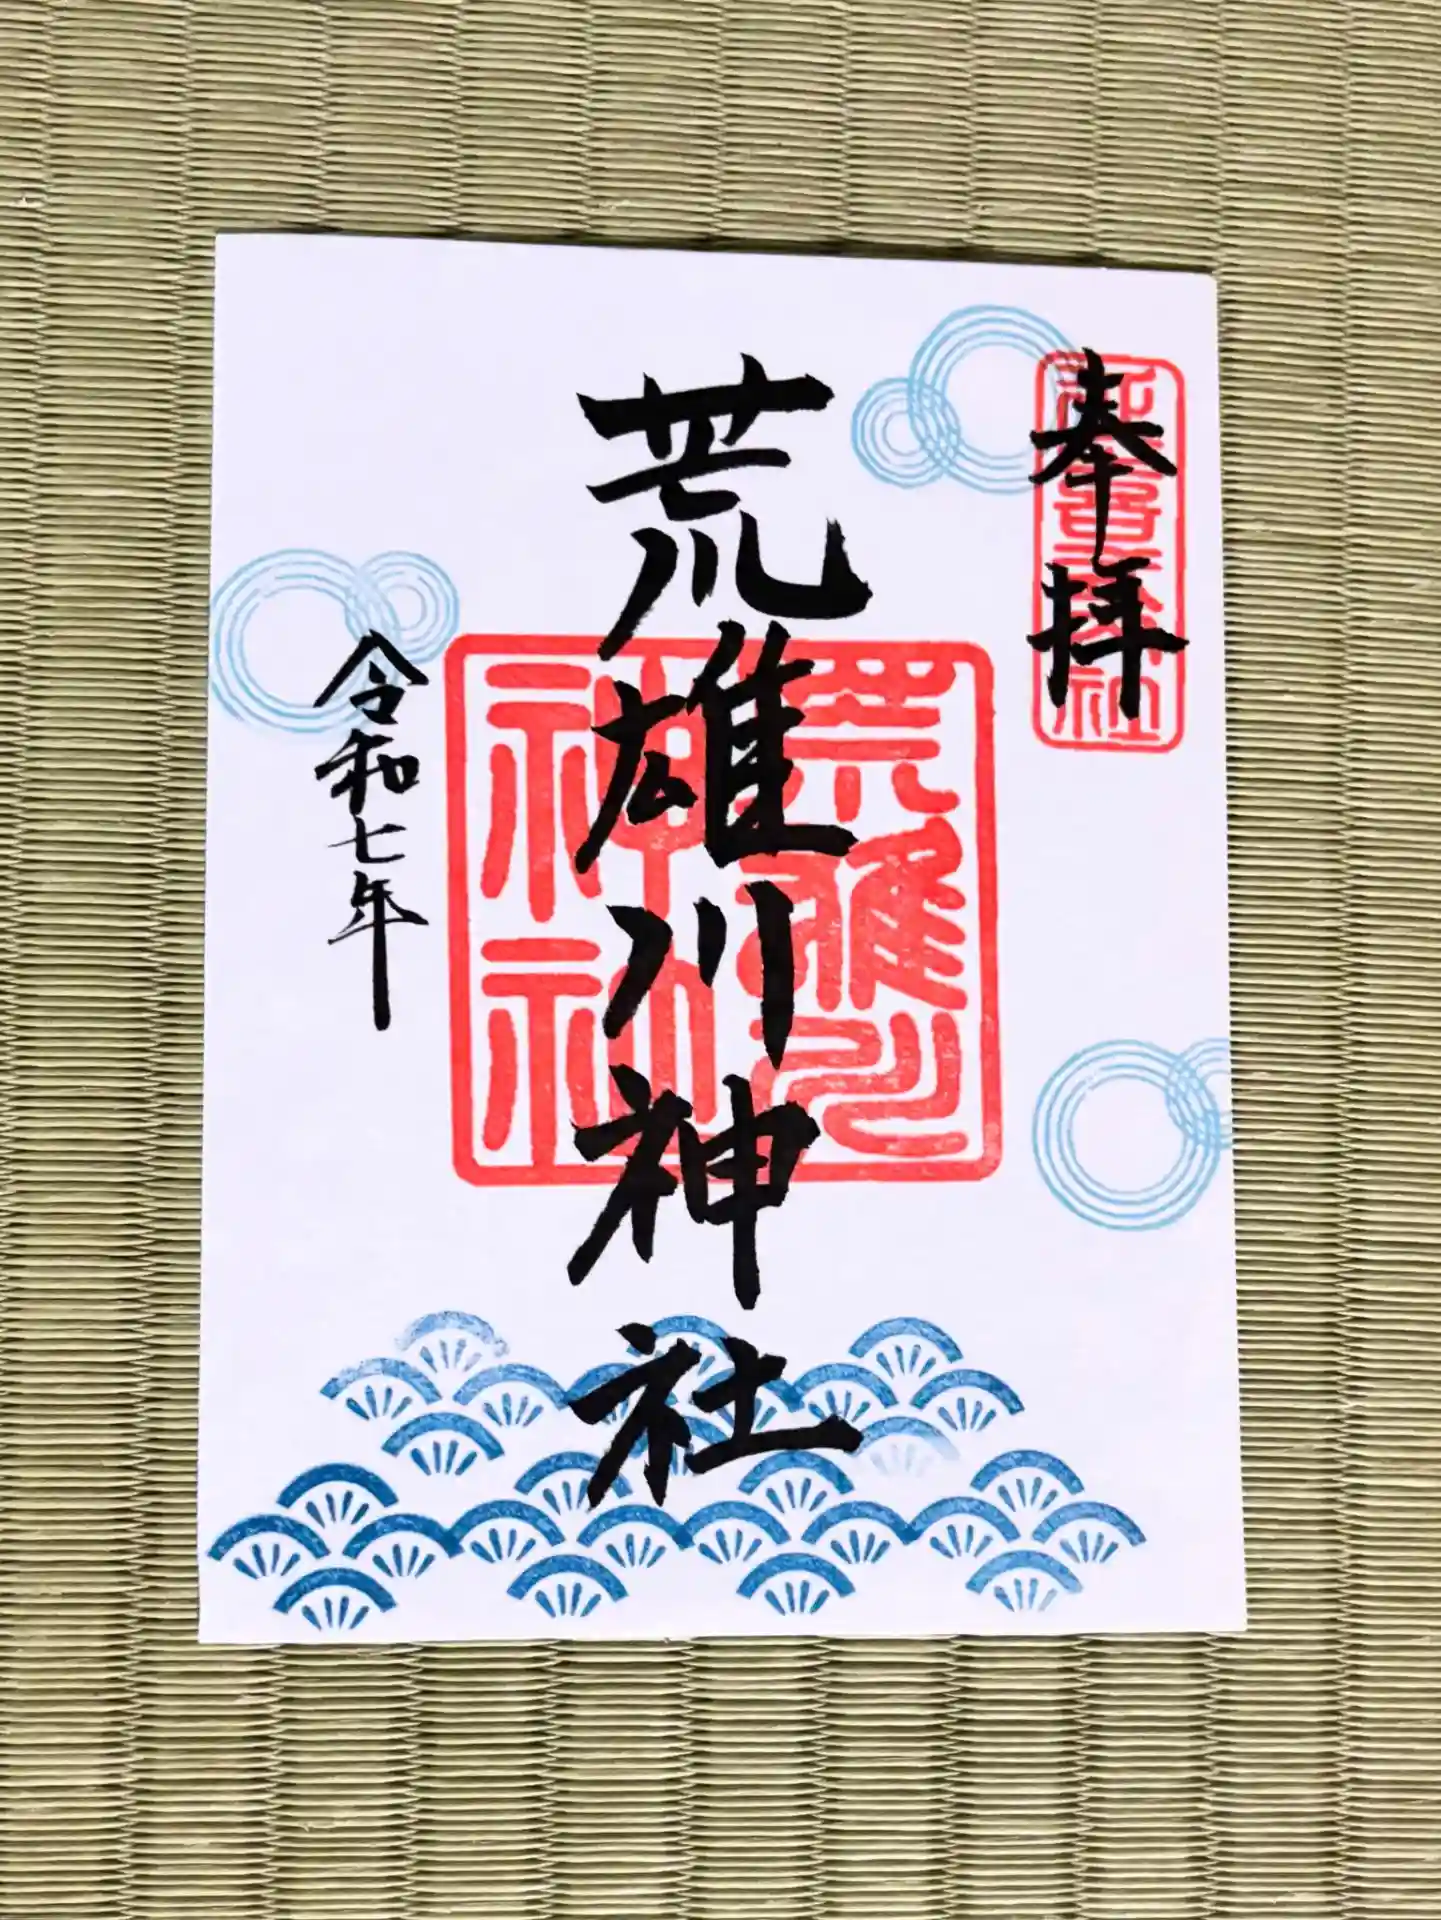 奉拝
荒雄川神社
令和七年
荒雄川
神社